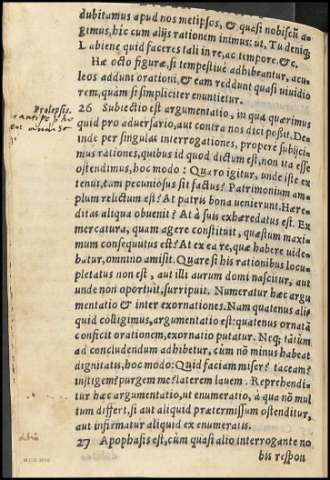 dubitamus apud nos metipsos, & quasi nobiscū a-
gimus, hic cum alijs rationem inimus: ut, Tu deniq;
Labiene quid faceres tali in re, ac tempore. &c.
Hæ octo figuræ, si tempestiuè adhibeantur, acu-
leos addunt orationi, & eam reddunt quasi uiuidio
rem, quàm si simpliciter enuntietur.
Prolepsis.
26 Subiectio est argumentatio, in qua quærimus
quid pro aduersario, aut contra nos dici possit. Dein
inde per singulas interrogationes, properè subijci-
mus rationes, quibus id quod dictum est, non ita esse
ostendimus, hoc modo: Quæro igitur, unde iste ex
tenus, tam pecuniosus sit factus? Patrimonium am-
plum relictum est? At patris bona uenierunt. Hære-
ditas aliqua obuenit? At à suis exhæredatus est. Ex
mercatura, quam agere constituit, quæstum maxi-
mum consequutus est? At ex ea re, quæ habere uide-
batur, omnino amisit. Quare si his rationibus locu-
pletatus non est, aut illi aurum domi nascitur, aut
unde non oportuit, surripuit. Numeratur hæc argu
mentatio & inter exornationes. Nam quatenus ali-
quid colligimus, argumentatio est: quatenus ornatā
conficit orationem, exornatio putatur. Neq; tātùm
ad concludendum adhibetur, cùm nō minus habeat
dignitatis, hoc modo: Quid faciam miser? taceam?
instigem? purgem me? laterem lauem. Reprehendi-
tur hæc argumentatio, ut enumeratio, à qua nō mul
tum differt, si aut aliquid prætermissum ostenditur,
aut infirmatur aliquid ex enumeratis.
27 Apophasis est, cùm quasi alio interrogante no
bis respon